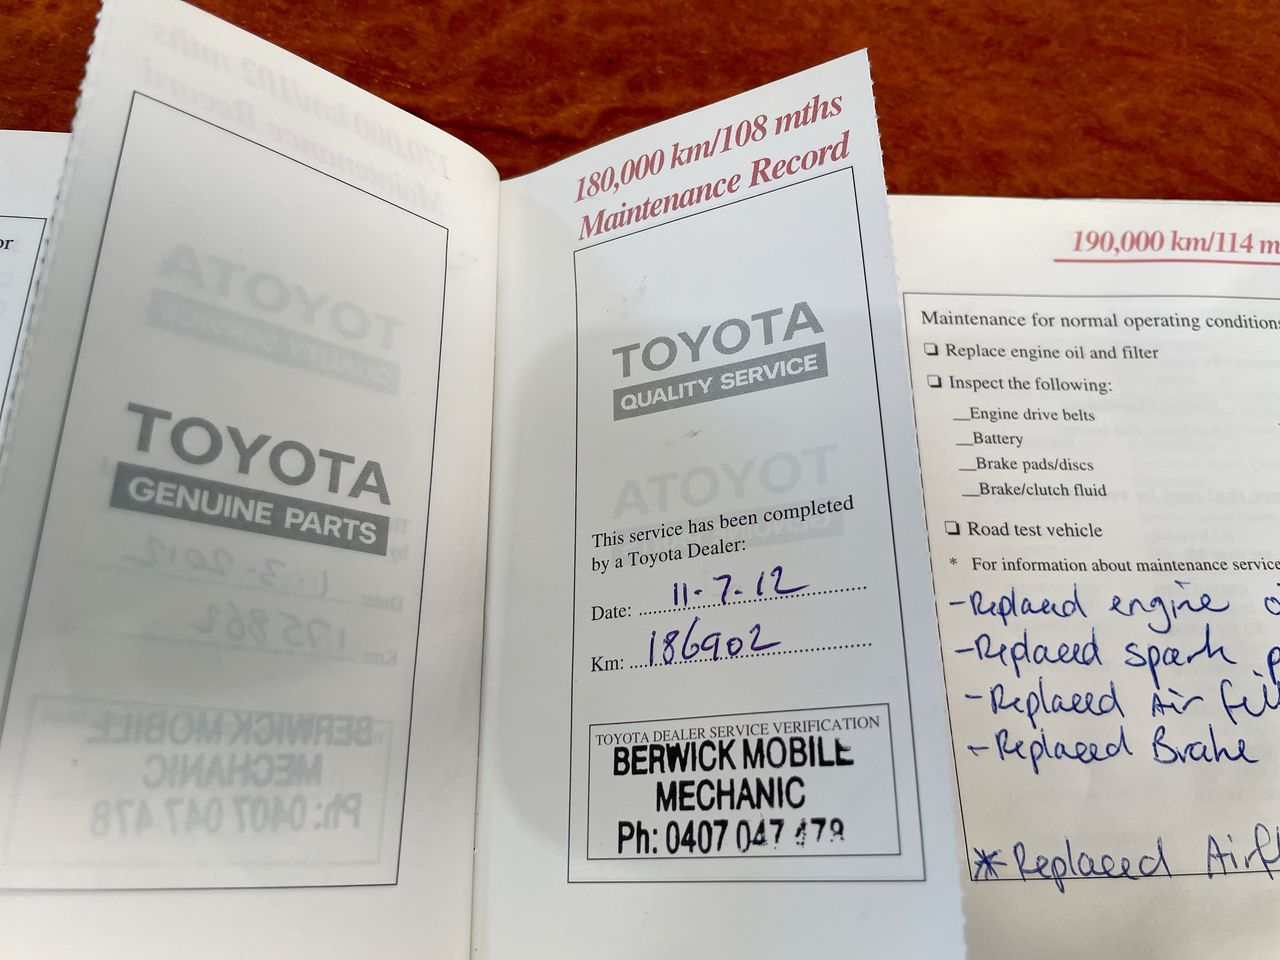 or
TOYOTA
GENUINE PARTS
180,000 km/108 mths
Maintenance Record
TOYOTA
QUALITY SERVICE
This service has been completed
by a Toyota Dealer:
Date: 11-7-12
Km: 186902
TOYOTA DEALER SERVICE VERIFICATION
BERWICK MOBILE
MECHANIC
Ph: 0407 047 478
190,000 km/114 m
Maintenance for normal operating conditions
❏ Replace engine oil and filter
❏ Inspect the following:
__Engine drive belts
__Battery
__Brake pads/discs
__Brake/clutch fluid
❏ Road test vehicle
* For information about maintenance service
-Replaced engine
-Replaced spark p
-Replaced Air fil
-Replaced Brake
* Replaced Airf